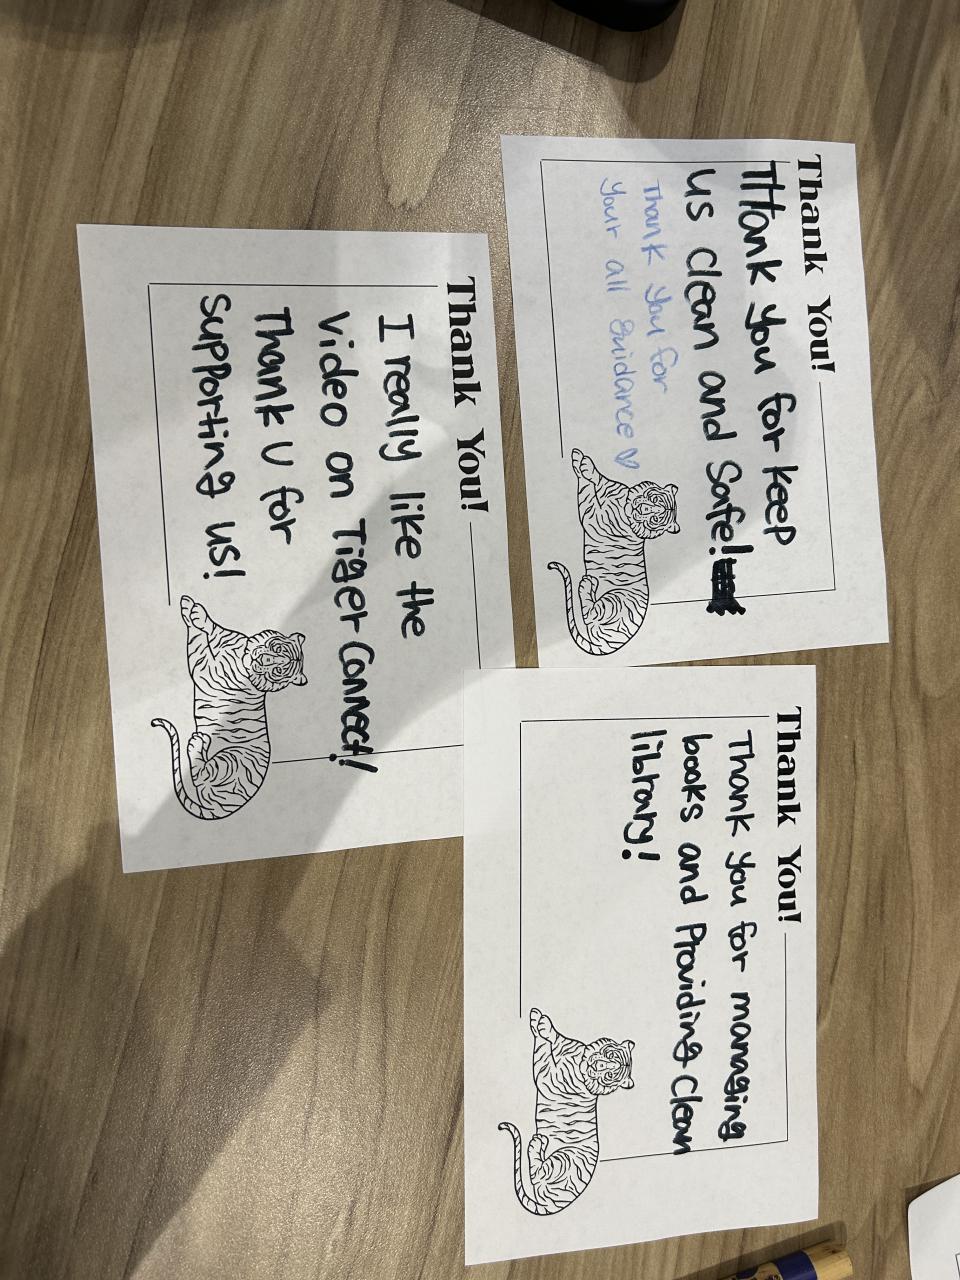 Thank You!
THank you for keep
us clean and Safe!
Thank you for
your all Guidance
Thank You!
I really like the
Video on Tiger Connect!
Thank U for
Supporting us!
Thank You!
Thank you for managing
books and Providing Clean
library!